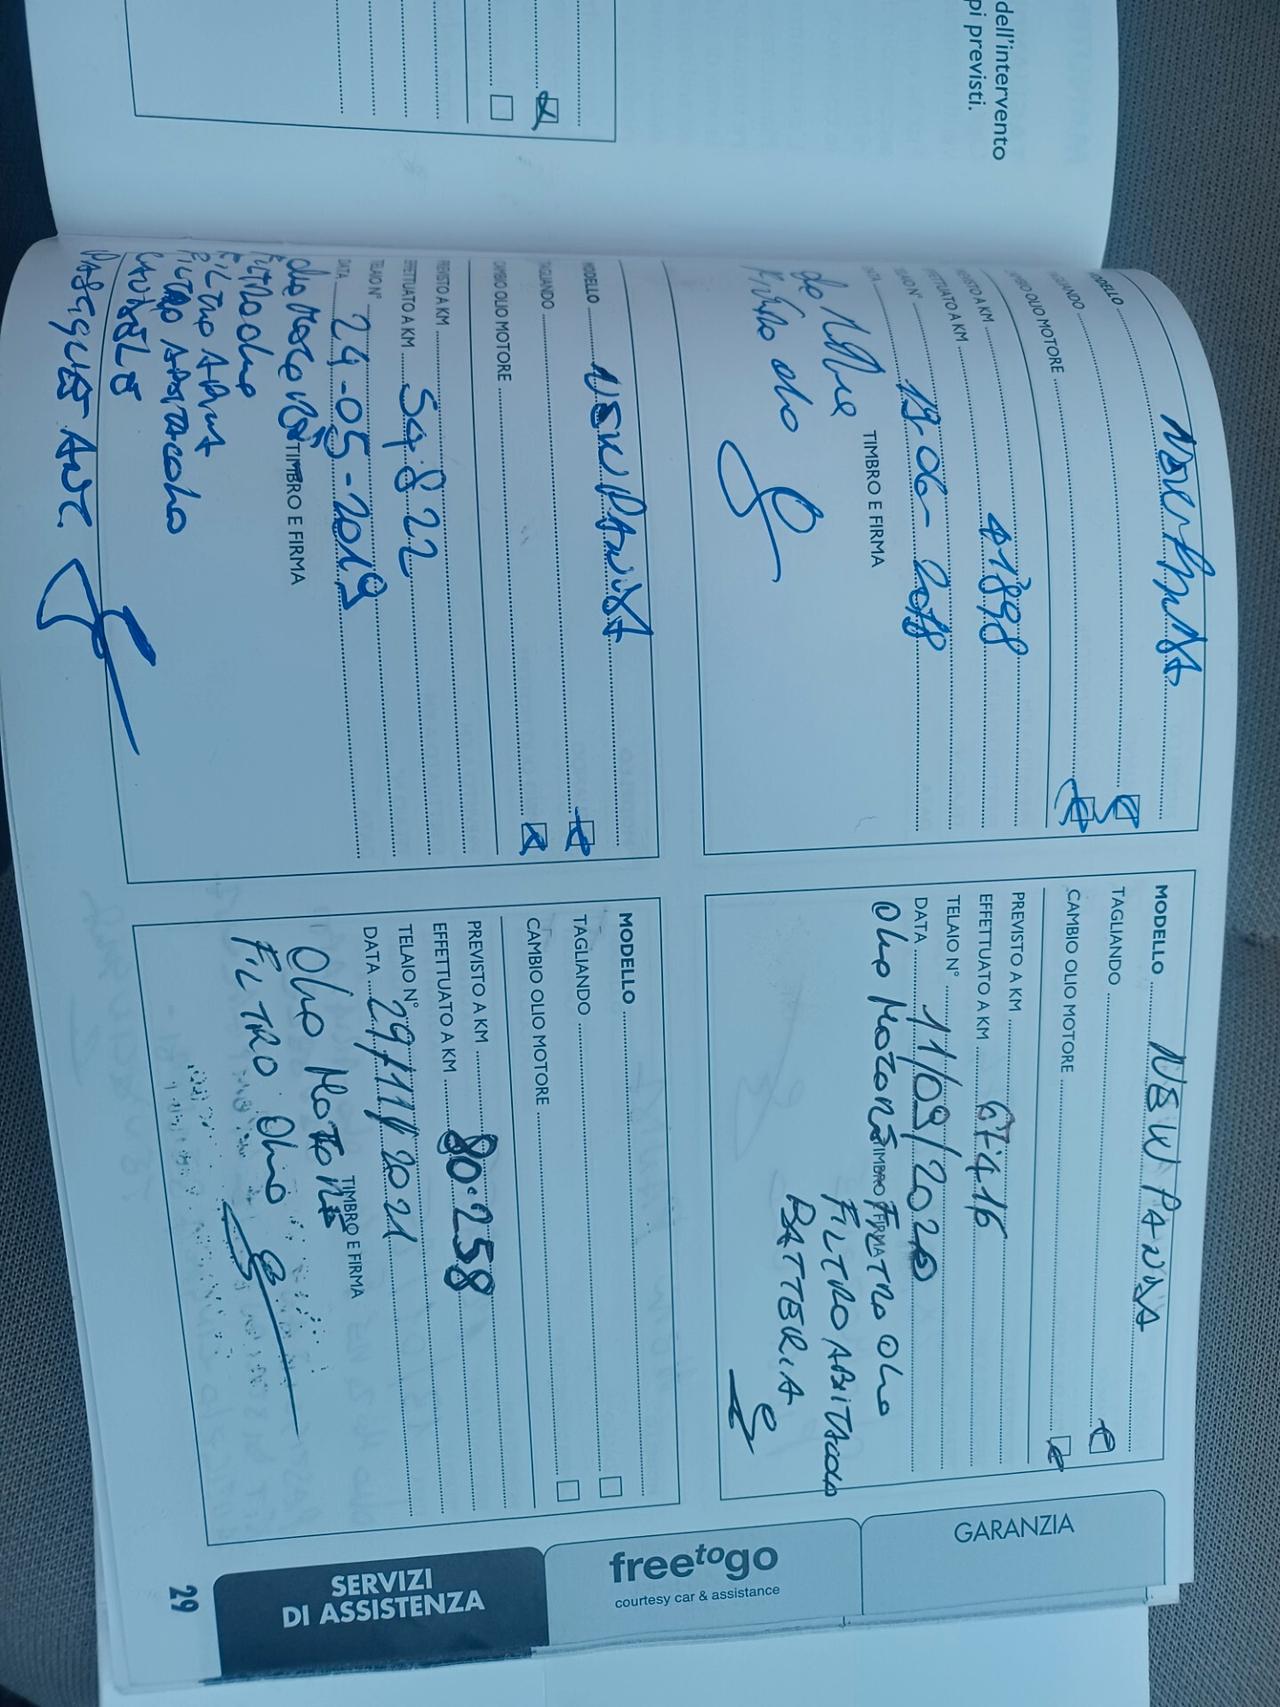 dell'intervento
pi previsti.
MODELLO
TAGLIANDO
CAMBIO OLIO MOTORE
PREVISTO A KM
EFFETTUATO A KM 41898
TELAIO N°
DATA 19-06-2018
TIMBRO E FIRMA
MODELLO NEW PANDA
TAGLIANDO
CAMBIO OLIO MOTORE
PREVISTO A KM
EFFETTUATO A KM 67.416
TELAIO N°
DATA 11/09/2020
TIMBRO E FIRMA
Olio Motore FILTRO Olio
FILTRO ABITACOLO
BATTERIA
MODELLO NEW PANDA
TAGLIANDO
CAMBIO OLIO MOTORE
PREVISTO A KM
EFFETTUATO A KM 54.822
TELAIO N°
DATA 24-05-2019
TIMBRO E FIRMA
Olio Motore
FILTRO olio
FILTRO ARIA
FILTRO ABITACOLO
ANT
MODELLO
TAGLIANDO
CAMBIO OLIO MOTORE
PREVISTO A KM
EFFETTUATO A KM 80.258
TELAIO N°
DATA 29/11/2021
TIMBRO E FIRMA
Olio Motore
FILTRO Olio
GARANZIA
freetogo
courtesy car & assistance
SERVIZI
DI ASSISTENZA
29